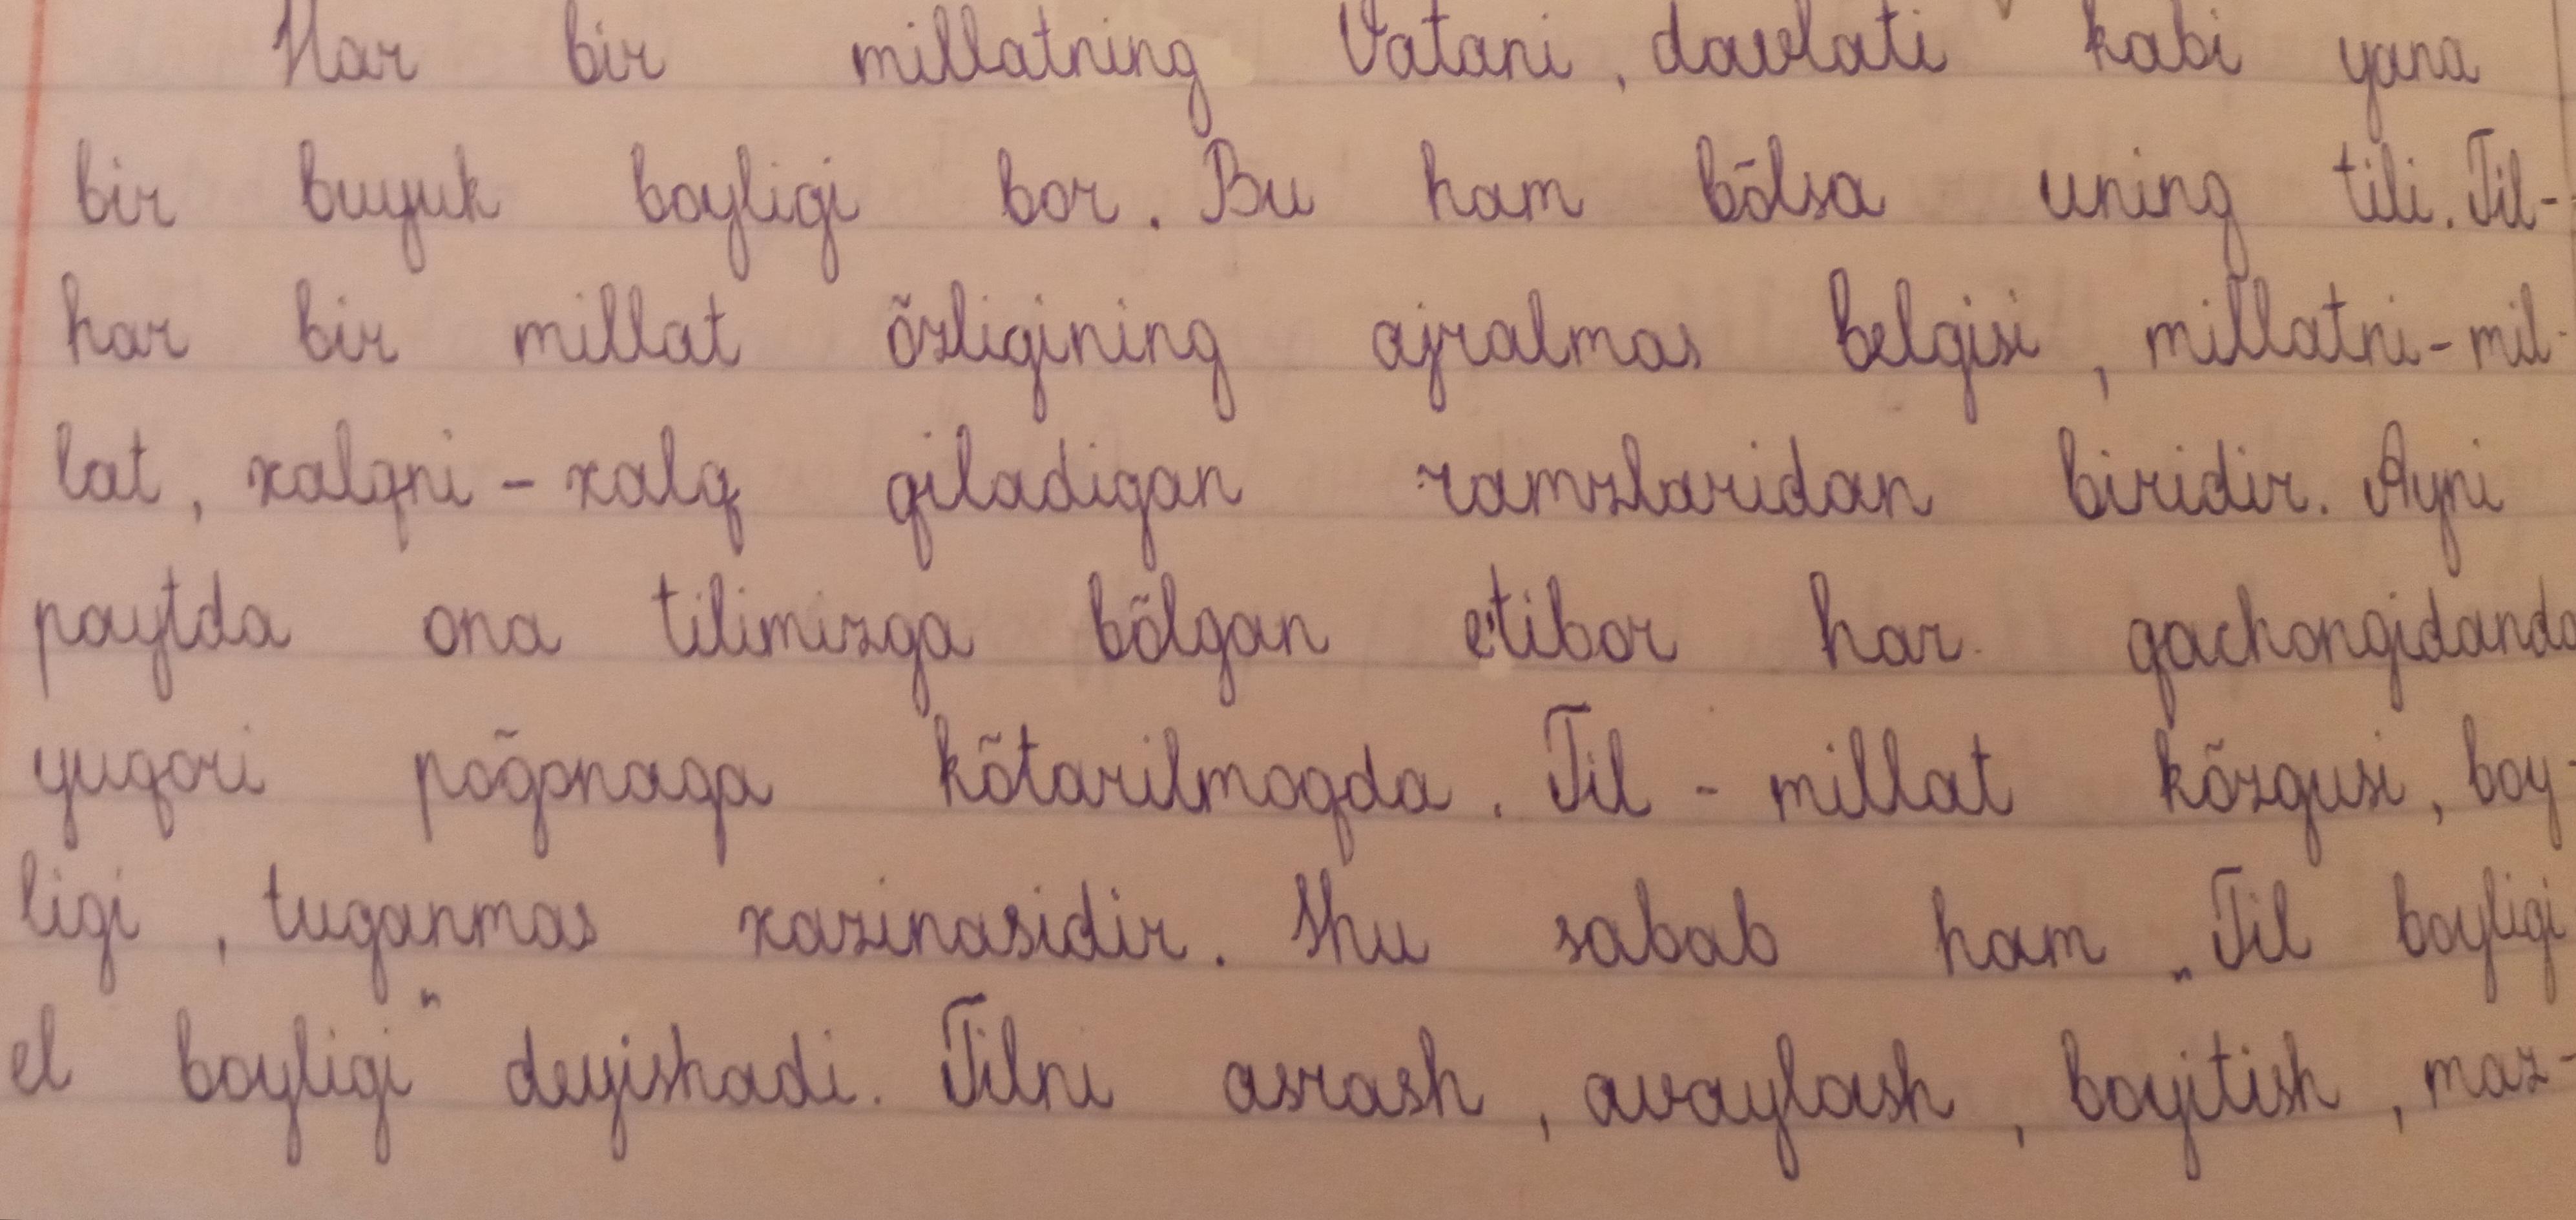 Har bir millatning Vatani, davlati kabi yana
bir buyuk boyligi bor. Bu ham bõlsa uning tili. Til-
har bir millat õzligining ajralmas belgisi, millatni-mil-
lat, xalqni-xalq qiladigan ramzlaridan biridir. Ayni
paytda ona tilimizga bõlgan e'tibor har qachongidanda
yuqori põg̃onaga kõtarilmoqda. Til - millat kõzgusi, boy-
ligi, tuganmas xazinasidir. Shu sabab ham „Til boyligi
el boyligi" deyishadi. Tilni asrash, avaylash, boyitish, maz-